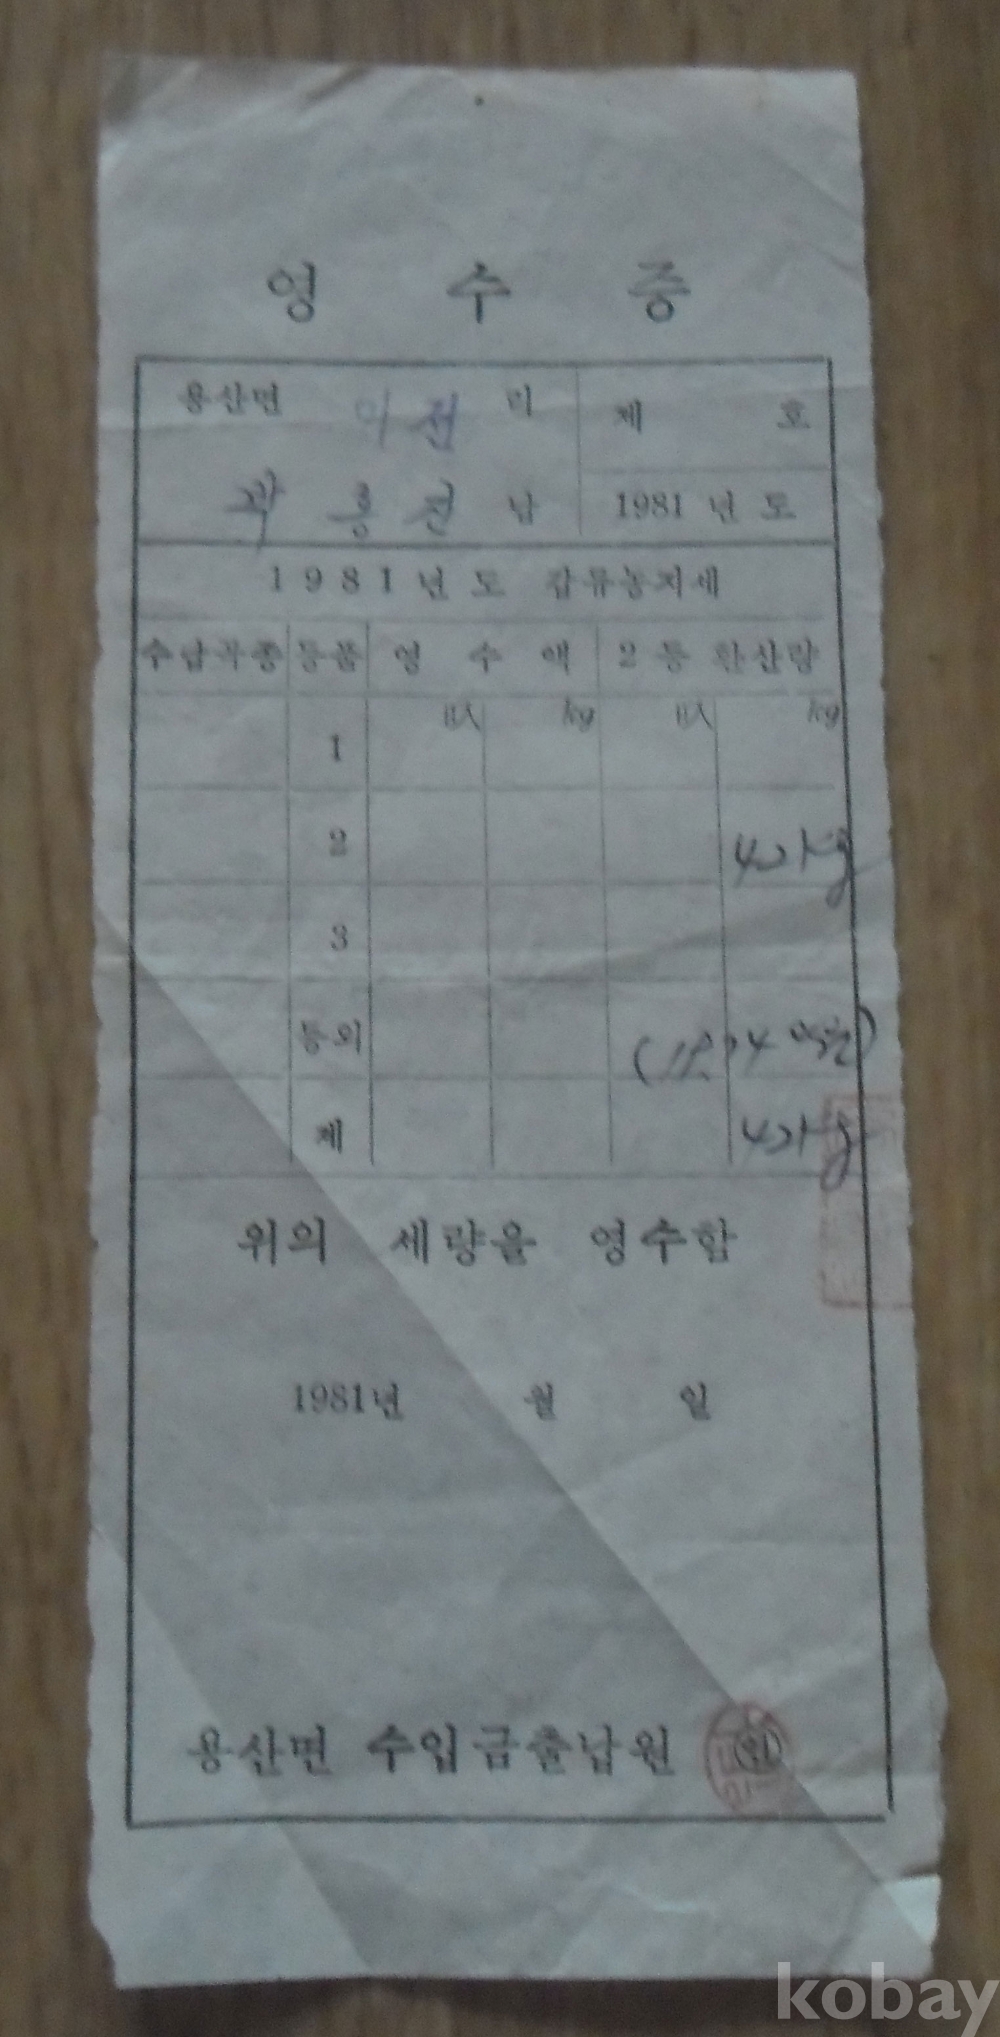 영 수 증
용산면 리
제 호
곽 흥 전 납
1981 년 도
1981년도 갑류농지세
수납곡종 등품 영 수 액 2 등 환산량
叺 kg 叺 kg
1
2
3
등외
계
위의 세량을 영수함
1981년 월 일
용산면 수입금출납원 인
kobay